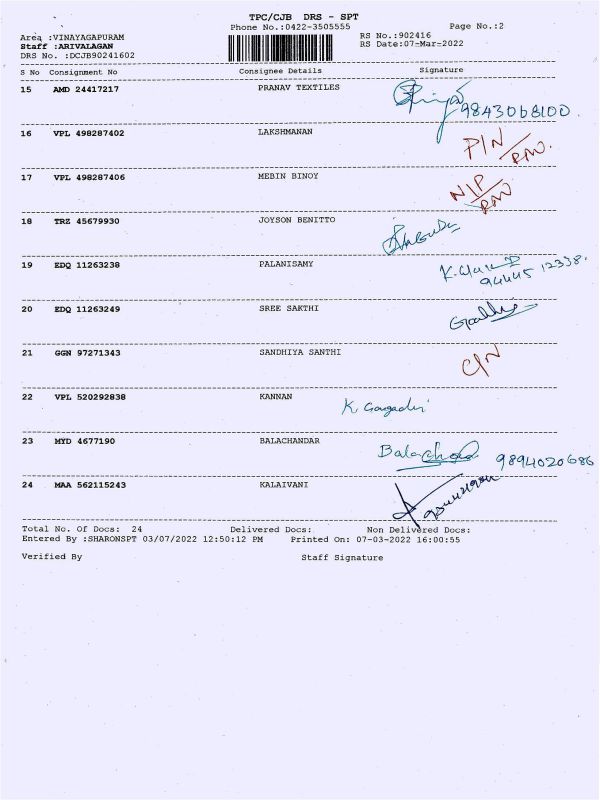 TPC/CJB DRS - SPT
Phone No.:0422-3505555 Page No.:2
Area :VINAYAGAPURAM RS No.:902416
Staff :ARIVALAGAN RS Date:07-Mar-2022
DRS No. :DCJB90241602
S No Consignment No Consignee Details Signature
15 AMD 24417217 PRANAV TEXTILES
9843068100
16 VPL 498287402 LAKSHMANAN
P/N
17 VPL 498287406 MEBIN BINOY
N/P
18 TRZ 45679930 JOYSON BENITTO
19 EDQ 11263238 PALANISAMY
94445 12338
20 EDQ 11263249 SREE SAKTHI
21 GGN 97271343 SANDHIYA SANTHI
C/N
22 VPL 520292838 KANNAN
23 MYD 4677190 BALACHANDAR
9894020686
24 MAA 562115243 KALAIVANI
Total No. Of Docs: 24 Delivered Docs: Non Delivered Docs:
Entered By :SHARONSPT 03/07/2022 12:50:12 PM Printed On: 07-03-2022 16:00:55
Verified By Staff Signature